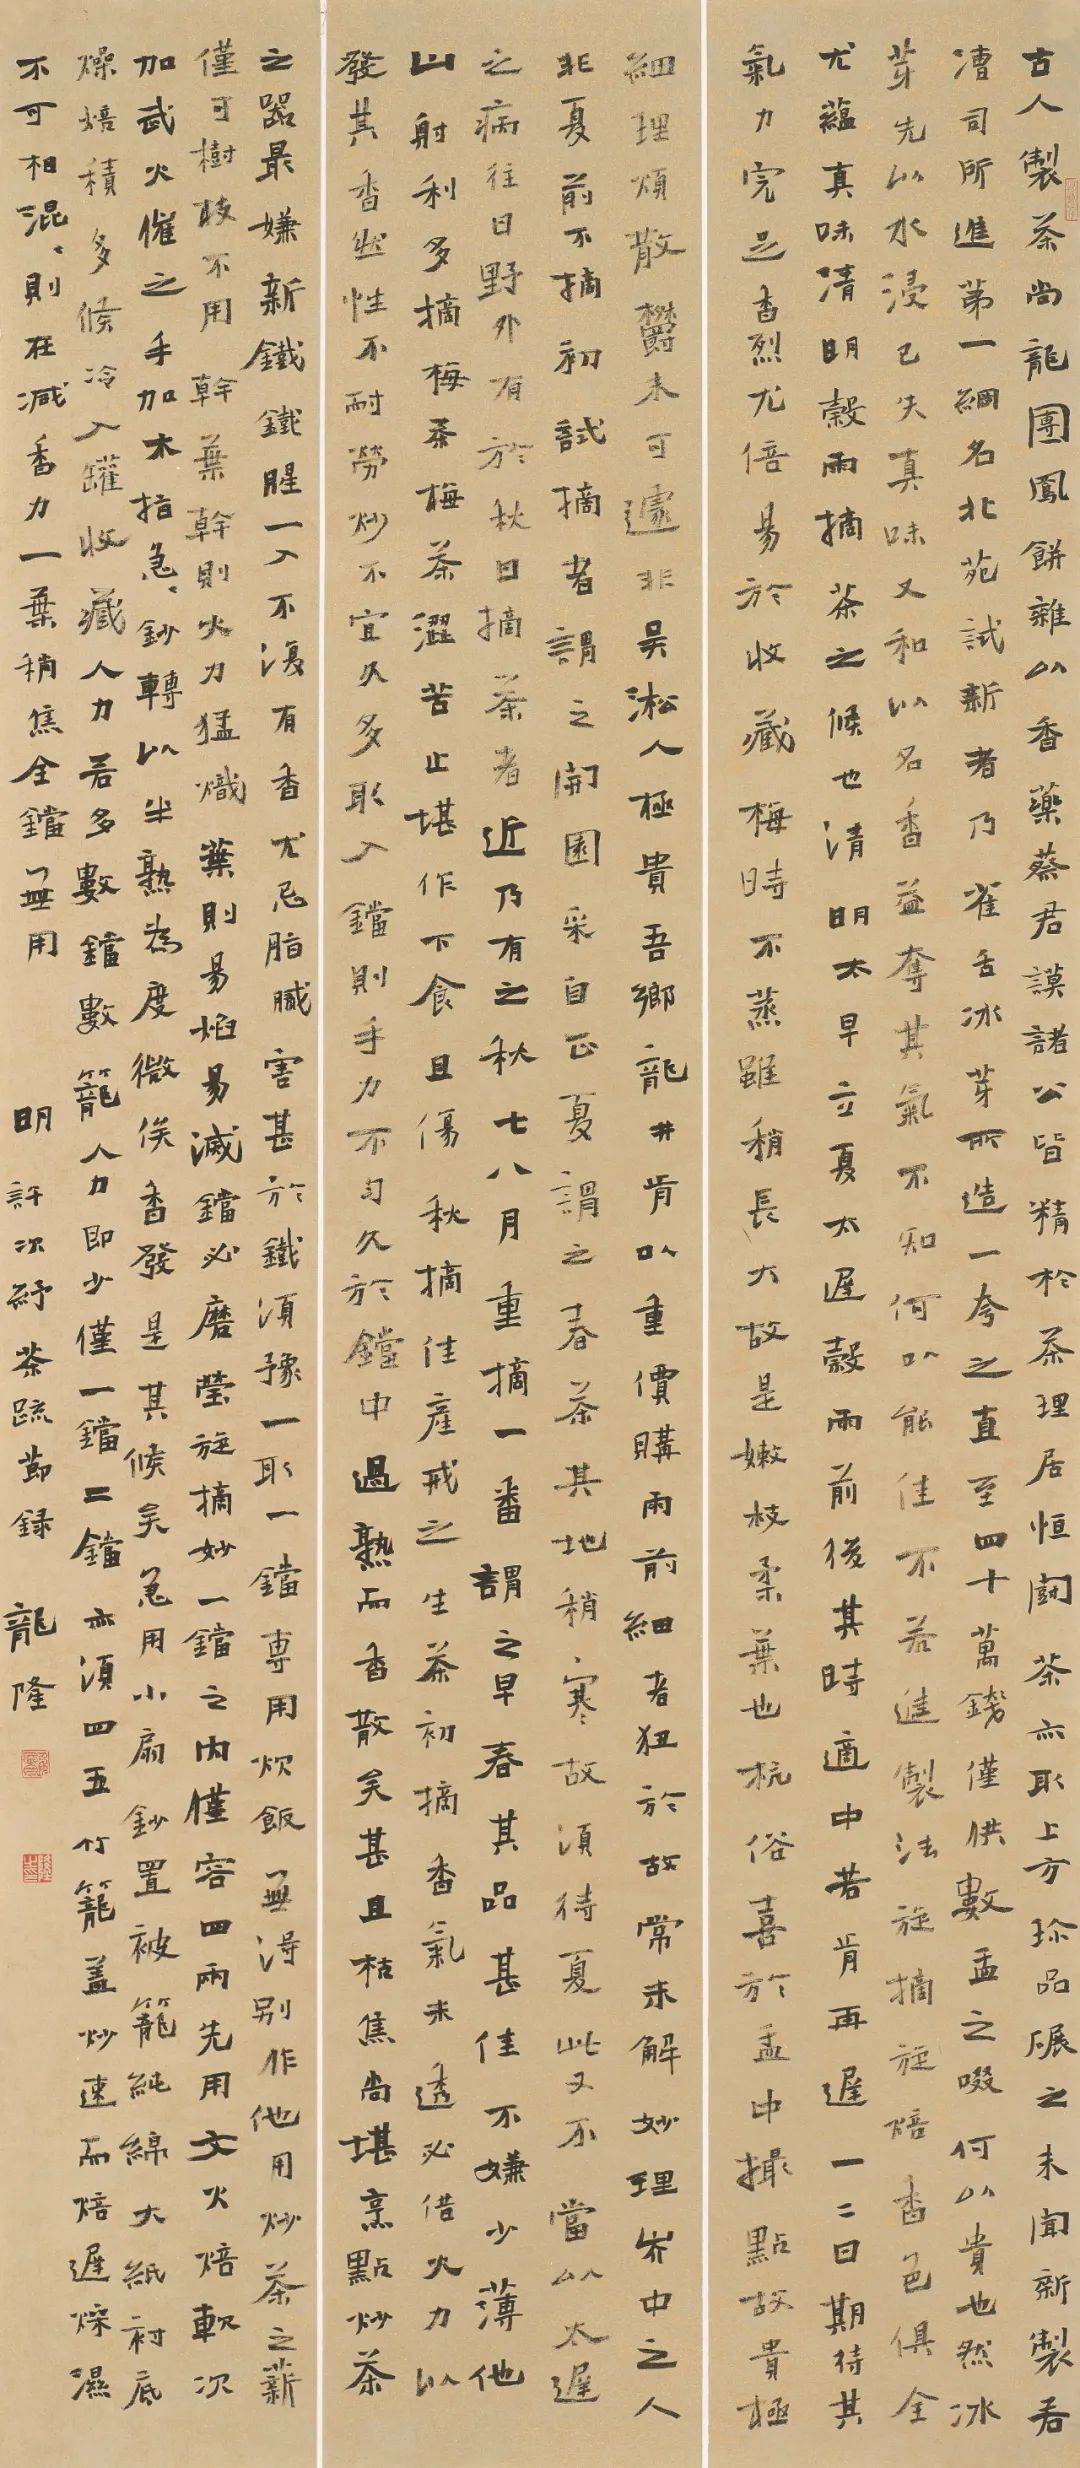 古人製茶尚龍團鳳餅雜以香藥蔡君謨諸公皆精於茶理居恒鬪茶亦取上方珍品碾之未聞新製若
漕司所進第一綱名北苑試新者乃雀舌冰芽所造一夸之直至四十萬錢僅供數盂之啜何以貴也然冰
芽先以水浸已失真味又和以名香益奪其氣不知何以能佳不若進製法旋摘旋焙香色俱全
尤蘊真味清明穀雨摘茶之候也清明太早立夏太遲穀雨前後其時適中若肯再遲一二日期待其
氣力完足香烈尤倍易於收藏梅時不蒸雖稍長大故是嫩枝柔葉也杭俗喜於盂中撮點故貴極
細理煩散鬱未可遽非吴淞人極貴吾鄉龍井肯以重價購雨前細者狃於故常未解妙理岕中之人
非夏前不摘初試摘者謂之開園采自正夏謂之春茶其地稍寒故須待夏此又不當以太遲
之病往日野外有於秋日摘茶者近乃有之秋七八月重摘一番謂之早春其品甚佳不嫌少薄他
山射利多摘梅茶梅茶澀苦止堪作下食且傷秋摘佳產戒之生茶初摘香氣未透必借火力以
發其香然性不耐勞炒不宜久多取入鐺則手力不匀久於鐺中過熟而香散矣甚且枯焦尚堪烹點炒茶
之器最嫌新鐵鐵腥一入不復有香尤忌脂膩害甚於鐵須豫一取一鐺專用炊飯無得别作他用炒茶之薪
僅可樹枝不用幹葉幹則火力猛熾葉則易焰易滅鐺必磨瑩旋摘妙一鐺之内僅容四兩先用文火焙軟次
加武火催之手加木指急〻鈔轉以半熟為度微俟香發是其候矣急用小扇鈔置被籠純綿大紙衬底
燥焙積多候冷入罐收藏人力若多數鐺數籠人力即少僅一鐺二鐺亦須四五竹籠盖炒速而焙遲燥濕
不可相混〻則在减香力一葉稍焦全鐺無用
明 許次紓茶疏節録 龍隆